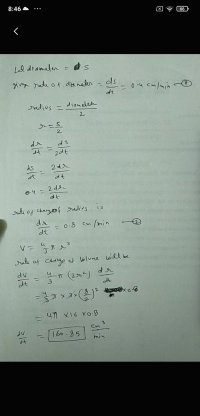 8:46
Let diameter = S
given rate of diameter = ds/dt = 0.4 cm/min —①
radius = diameter/2
r = S/2
dr/dt = ds/2dt
ds/dt = 2dr/dt
0.4 = 2dr/dt
rate of change of radius is
dr/dt = 0.8 cm/min —②
V = 4/3 π r³
rate of change of volume will be
dV/dt = 4/3 π (3r²) dr/dt
= 4/3 π × 3 × (8/2)² × 0.8
= 4π × 16 × 0.8
dV/dt = 160.85 cm³/min